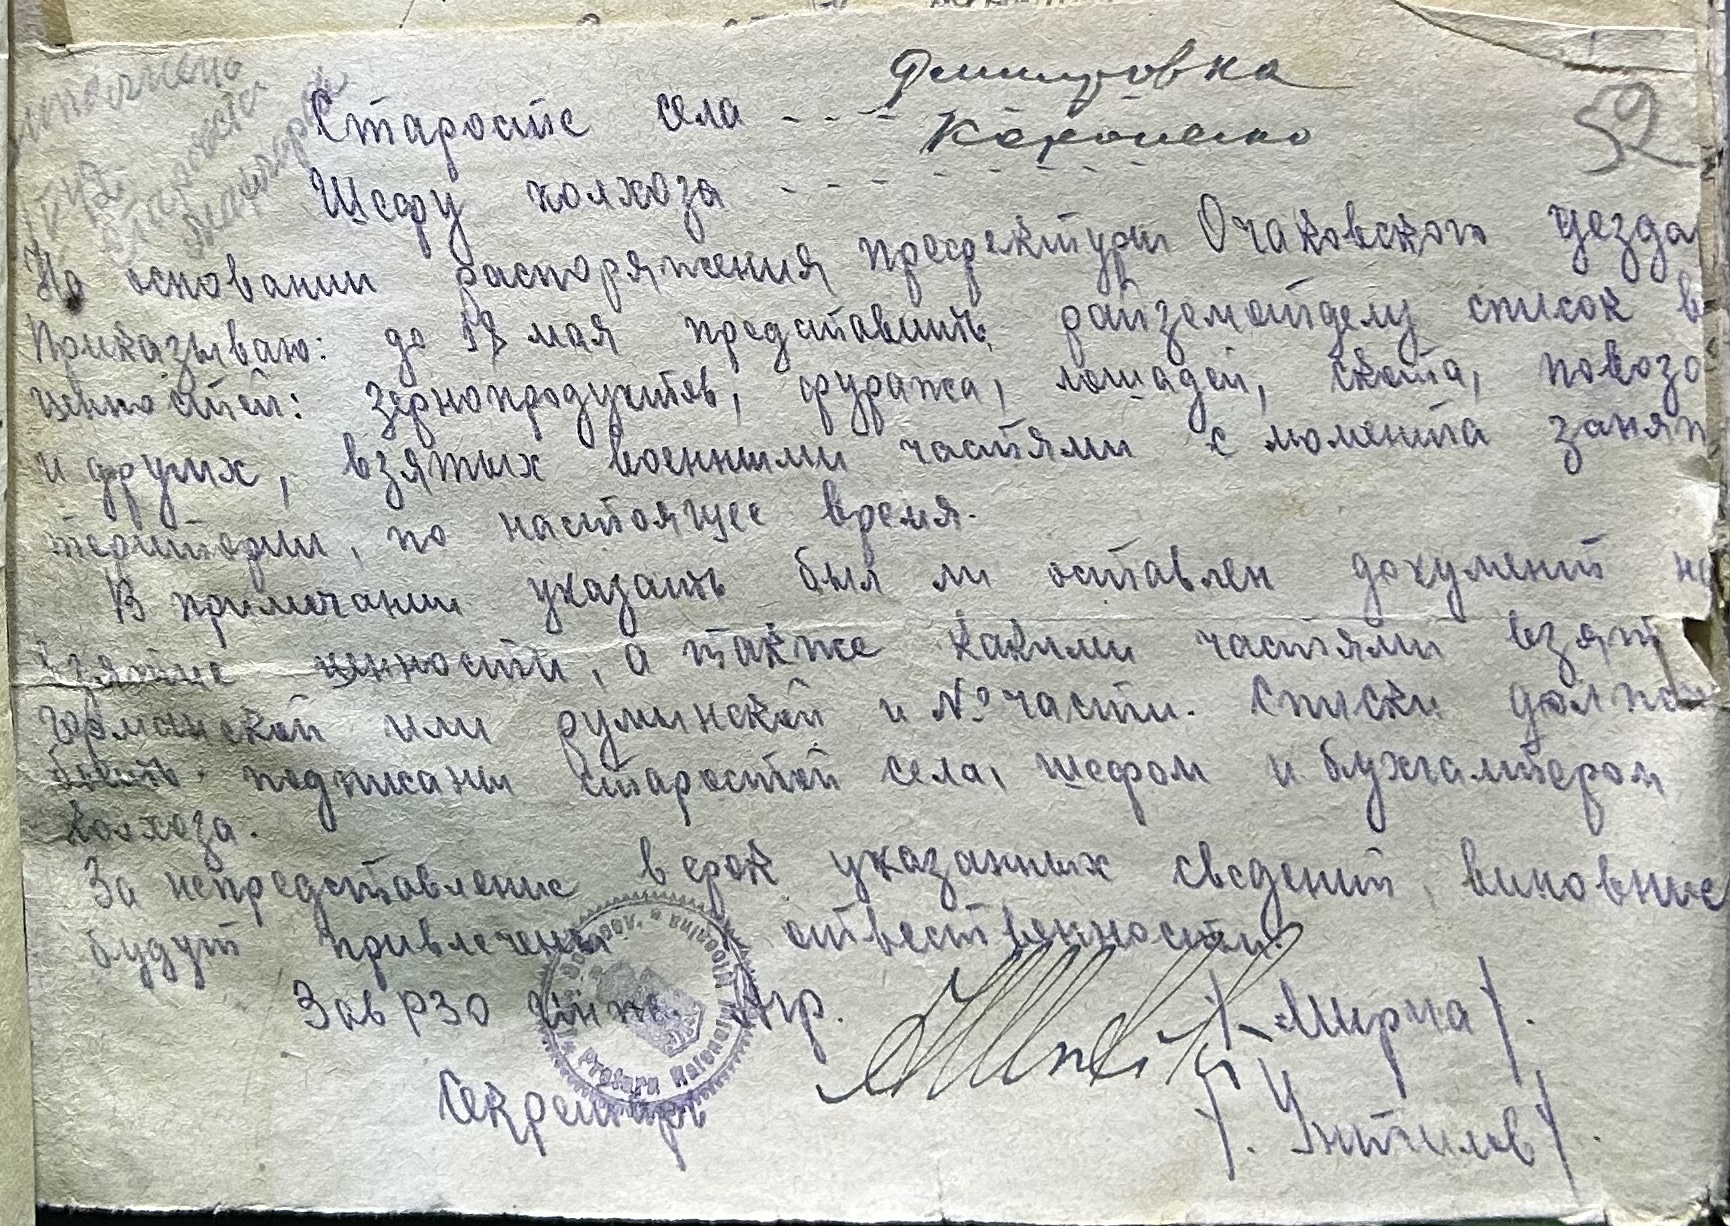 Дмитровка
Старосте села - - - -
52
Шефу колхоза - - - - - - - -
На основании распоряжения префектуры Очаковского уезда
Приказываю: до 17 мая представить райземотделу список в
ценностей: зернопродуктов, фуража, лошадей, скота, повозо
и других, взятых военными частями с момента занят
територии, по настоящее время.
В примечании указать был ли оставлен документ на
взятие ценности, а также какими частями взят
германской или румынской и № части. Списки должн
быть подписаны старостой села, шефом и бухгалтером
колхоза.
За непредставление в срок указанных сведений, виновные
будут привлечены к ответственности.
Зав РЗО Инж. Агр. /-Мирча/.
Секретарь /.
Pretura Raionului